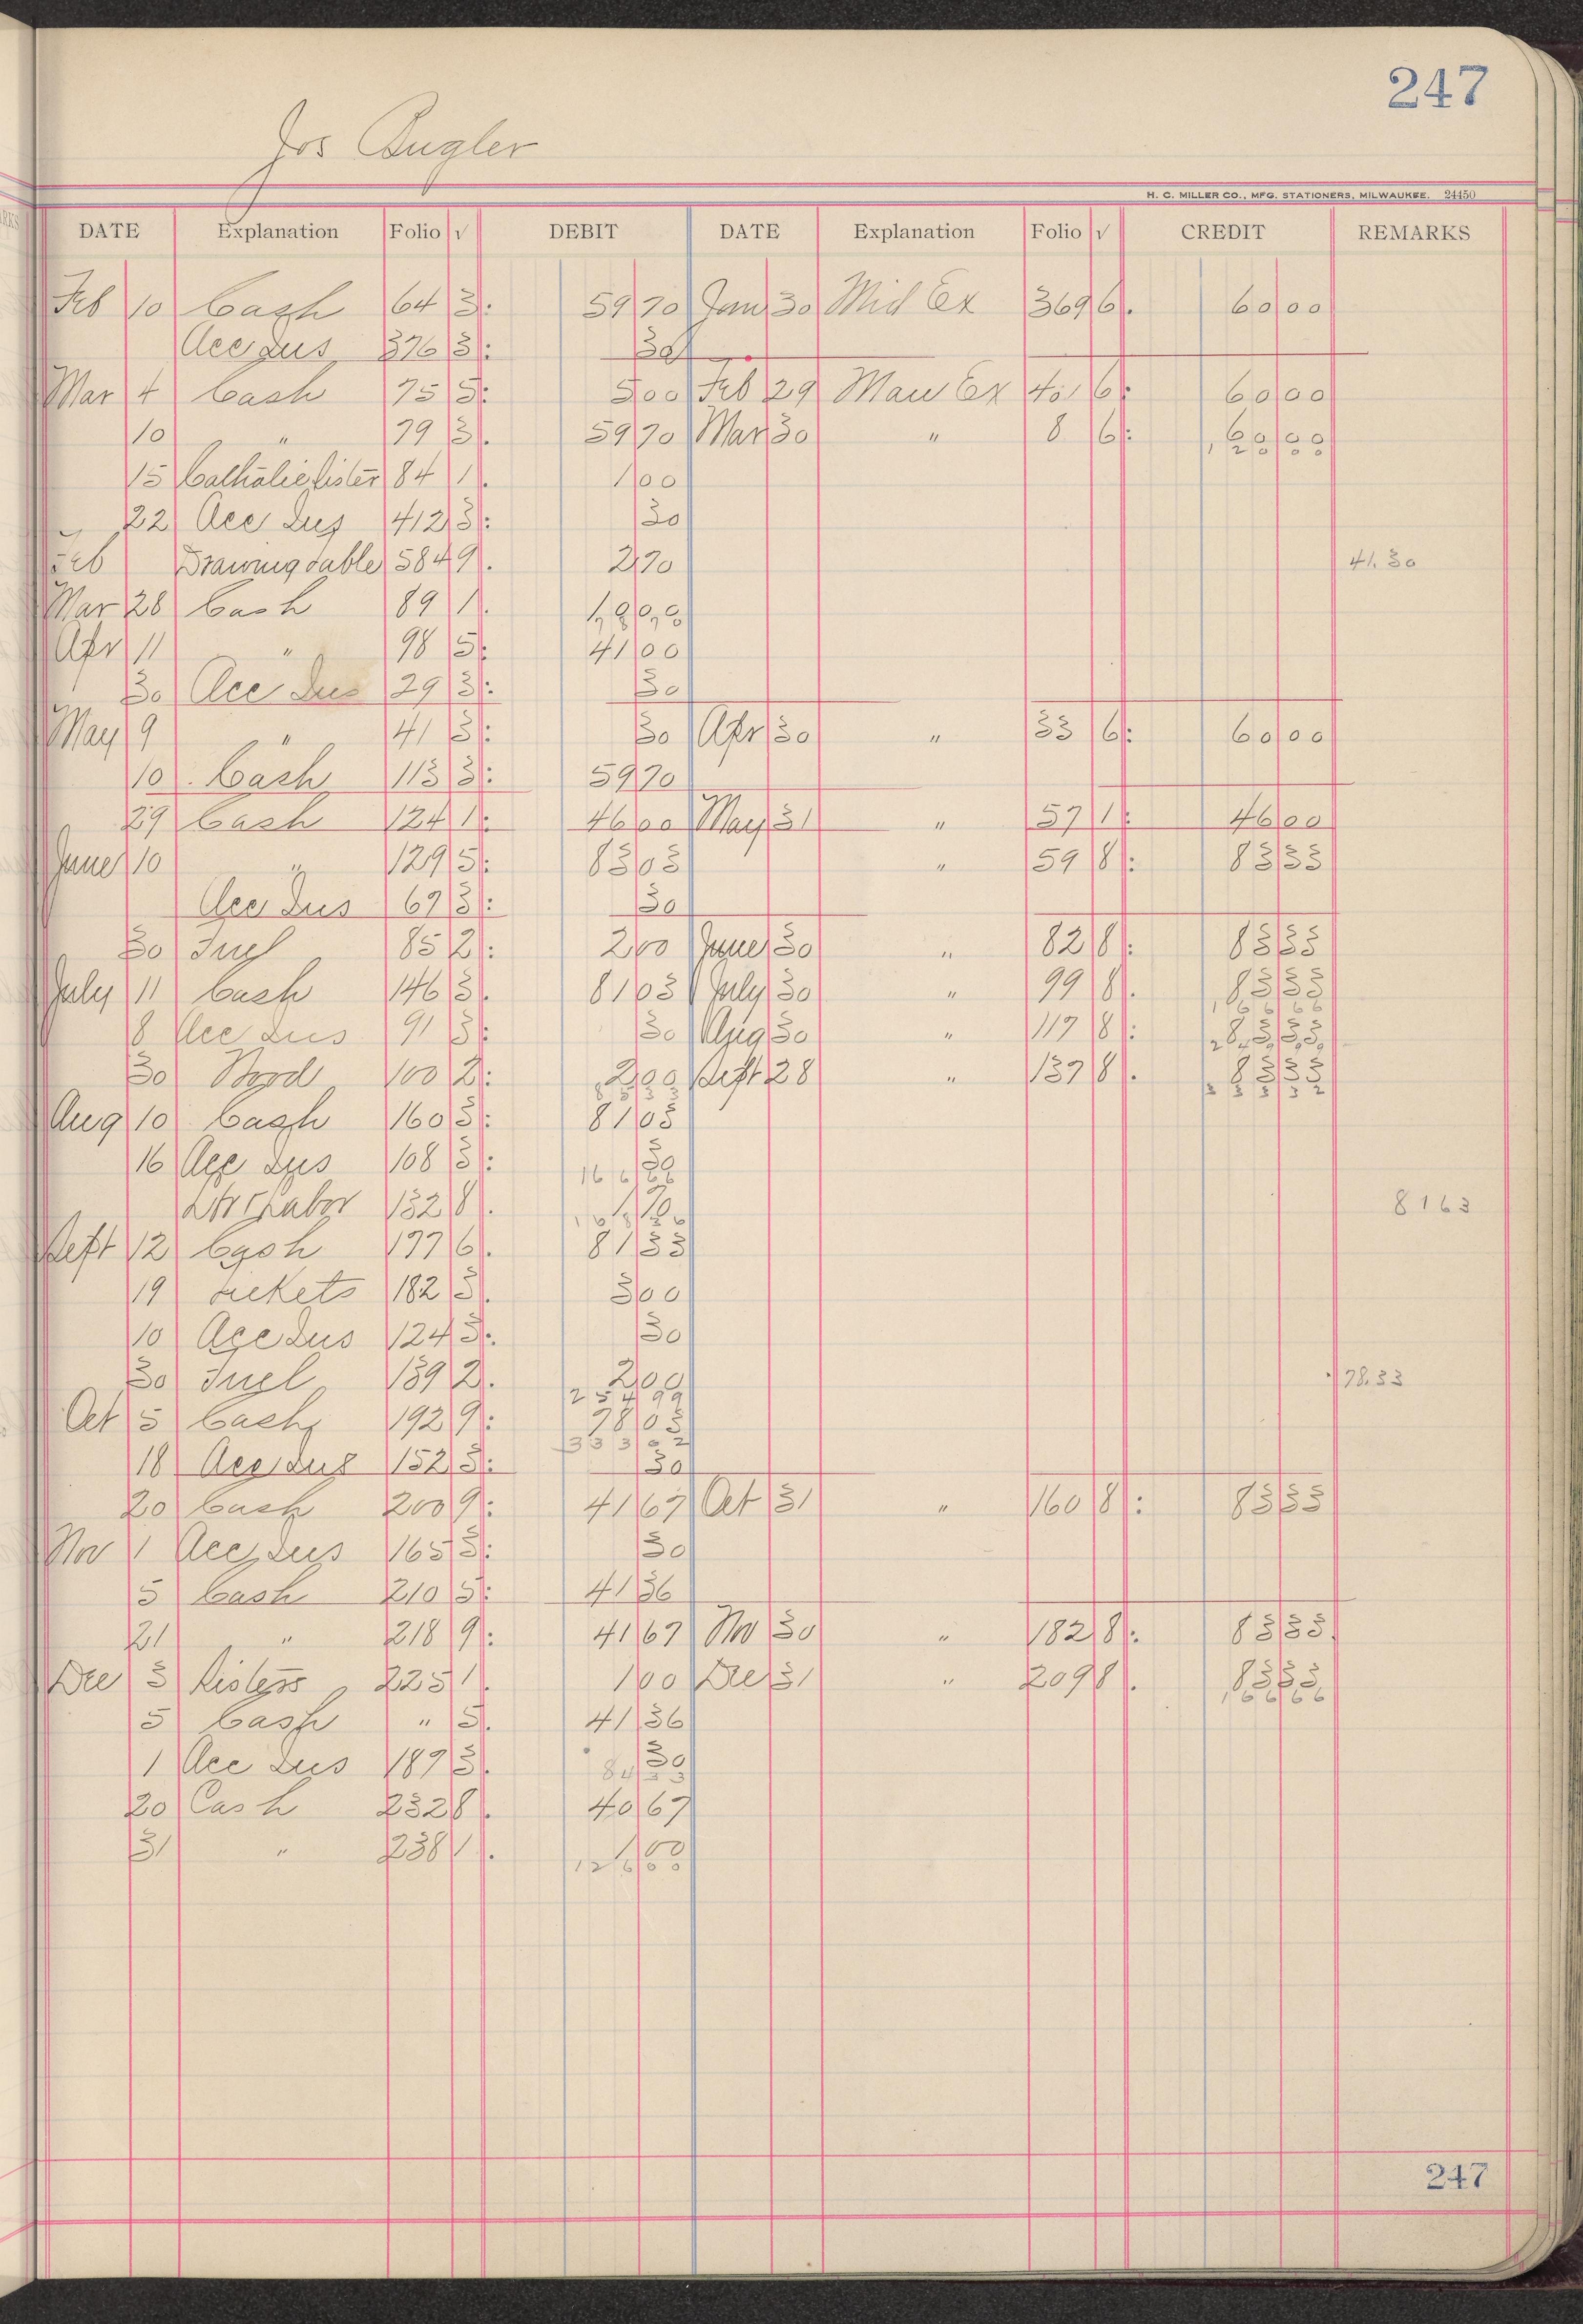 247
Jos Bugler
H. C. MILLER CO., MFG. STATIONERS, MILWAUKEE. 24450
DATE Explanation Folio √ DEBIT DATE Explanation Folio √ CREDIT REMARKS
Feb 10 Cash 64 3 59 70 Jan 30 Mid Ex 369 6 60 00
Acc Dus 376 3 30
Mar 4 Cash 75 5 5 00 Feb 29 Mau Ex 40 6 60 00
10 " 79 3 59 70 Mar 30 " 8 6 60 00
120 00
15 Catholic Sisters 84 1 1 00
22 Acc Dus 412 3 30
Feb Drawing table 384 9 2 70 41.30
Mar 28 Cash 89 1 1 00
Apr 11 " 98 5 41 00
30 Acc Dus 29 3 30
May 9 " 41 3 30 Apr 30 " 33 6 60 00
10 Cash 113 3 59 70
29 Cash 124 1 46 00 May 31 " 57 1 46 00
June 10 " 129 5 83 03 " 59 8 83 33
Acc Dus 67 3 30
30 Fuel 85 2 2 00 June 30 " 82 8 83 33
July 11 Cash 146 3 81 03 July 30 " 99 8 83 33
166 66
8 Acc Dus 91 3 30 Aug 30 " 117 8 83 33
30 Wood 100 2 2 00 Sept 28 " 137 8 83 33
333 32
Aug 10 Cash 160 3 81 03
16 Acc Dus 108 3 30
166 66
Labor 132 8 1 70
Sept 12 Cash 177 6 81 33
8163
19 Tickets 182 3 3 00
10 Acc Dus 124 3 30
30 Fuel 139 2 2 00 78.33
254 99
Oct 5 Cash 192 9 78 03
333 02
18 Acc Dus 152 3 30
20 Cash 200 9 41 67 Oct 31 " 160 8 83 33
Nov 1 Acc Dus 165 3 30
5 Cash 210 5 41 36
21 " 218 9 41 67 Nov 30 " 182 8 83 33
Dec 3 Sisters 225 1 1 00 Dec 31 " 209 8 83 33
166 66
5 Cash " 5 41 36
1 Acc Dus 189 3 30
84 33
20 Cash 232 8 40 67
31 " 238 1 1 00
126 00
247